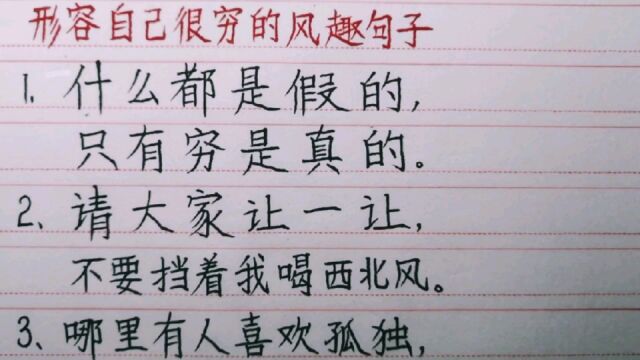 形容自己很穷的风趣句子
1. 什么都是假的,
只有穷是真的。
2、请大家让一让,
不要挡着我喝西北风。
3、哪里有人喜欢孤独,